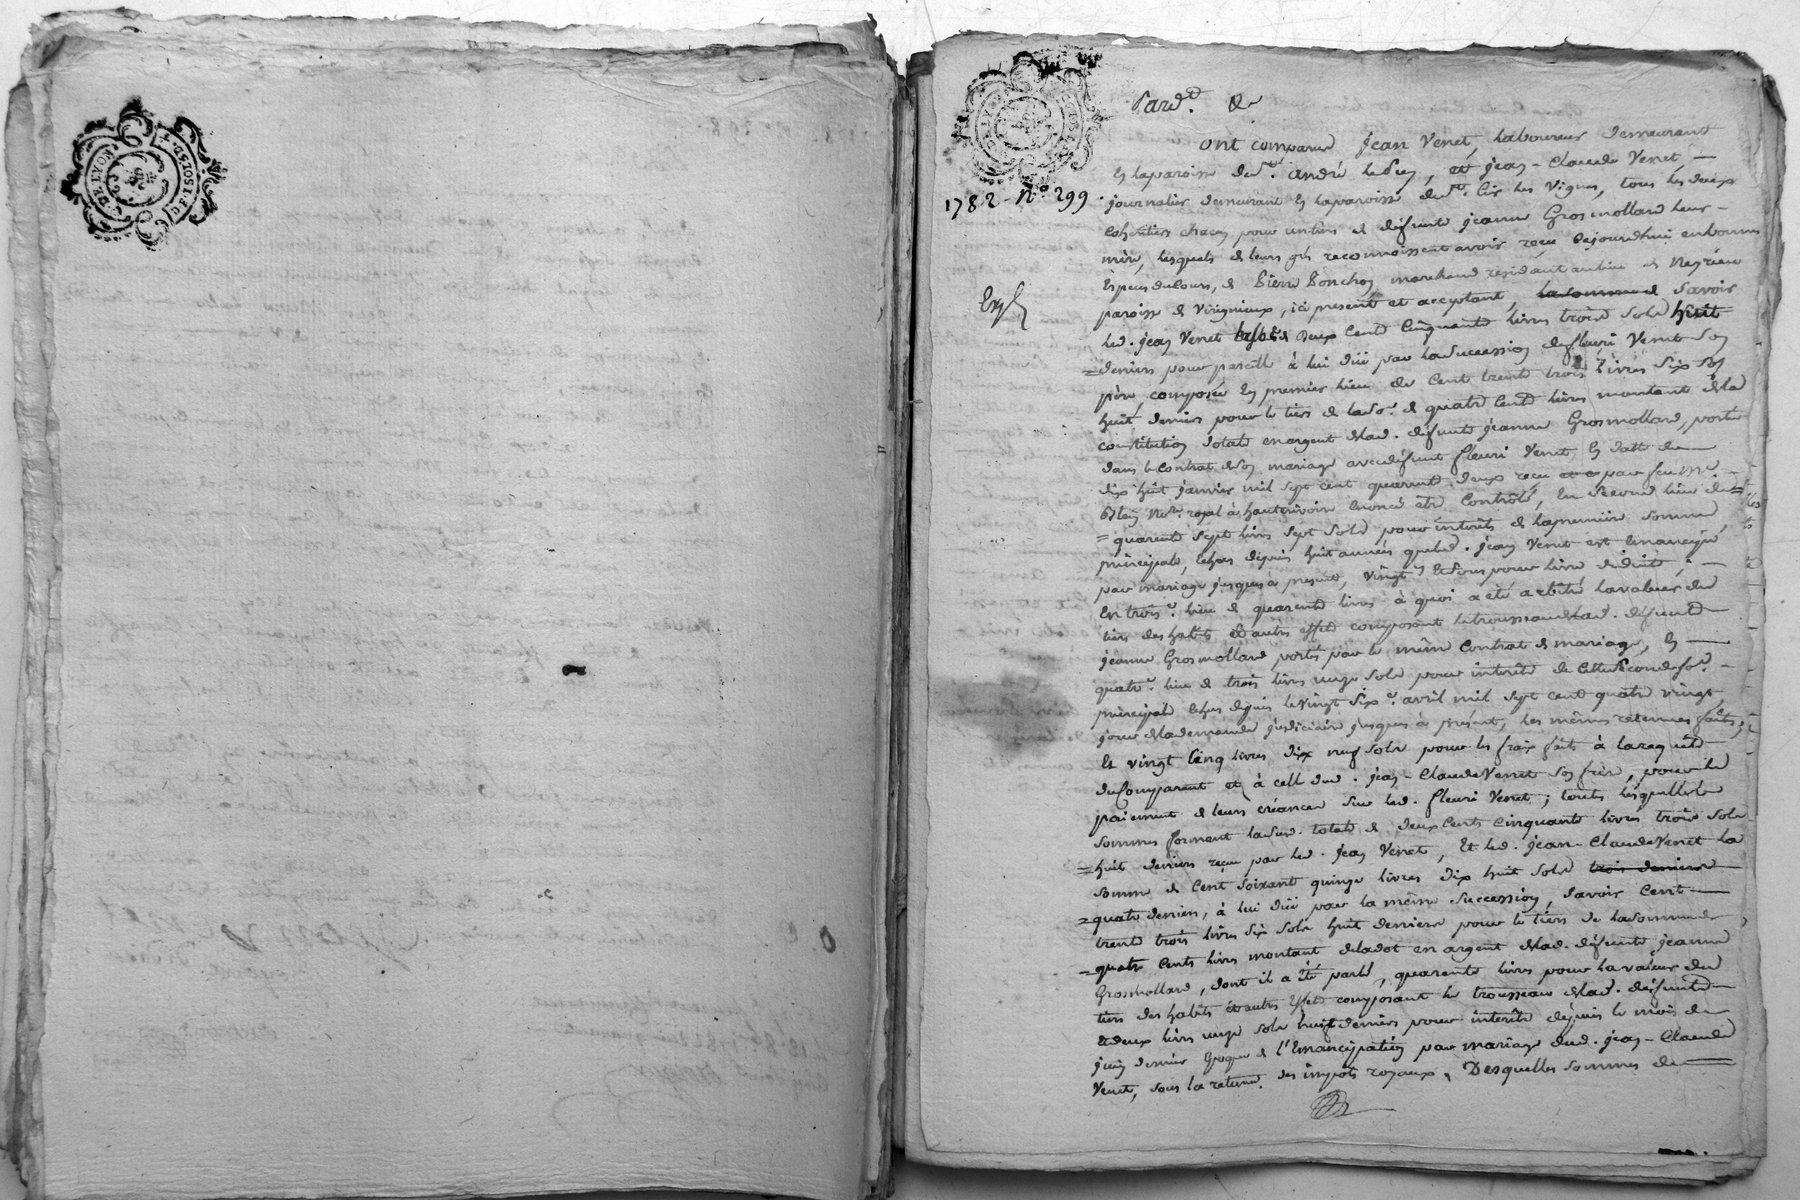 Pard.t &c
1782 - N.o 299.
Exp.
ont comparu Jean Venet, laboureur demeurant
En la paroisse de S.t andré le Puy, et jean-Claude Venet,
journalier demeurant En la paroisse de S.t Cir les Vignes, tous les deux
Cohéritiers chacun pour un tiers de défunte jeanne Grosmollard leur
mère, lesquels de leurs grés reconnoissent avoir reçu dejourdhui en bonnes
Espèces du Cours, de Pierre Ponchon marchand résidant au lieu de
paroisse de Virignieux, ici présent et acceptant, la somme de savoir
led. jean Venet deux Cent Cinquante livres trois sols huit
=deniers pour pareille à lui düe par la Succession de fleuri Venet son
père, composée En premier lieu de Cent trente trois livres Six sols
huit deniers pour le tiers de la So.e de quatre Cent livres montant de la
constitution dotale en argent de lad. défunte jeanne Grosmollard, portée
dans le Contrat de son mariage avec défunt fleuri Venet En datte du
dix huit janvier mil sept cent quarente deux reçu par feu M.e
No.re royal à hauterivoire Enoncé être Contrôlé, En Second lieu de
= quarente sept livres Sept Sols pour intérêts de la première somme
principale, échus depuis huit années que led. jean Venet est Emancipé
par mariage jusques à présent, Vingt Et Sous pour livre déduits;
En trois.e lieu de quarente livres à quoi a été arbitré la valeur du
tiers des habits et autres effets composant le trousseau de lad. défunte
jeanne Grosmollard portés par le même Contrat de mariage, En
quatr.e lieu de trois livres onze sols pour intérêts de Cette Seconde So.e
principale échus depuis le Vingt Six.e avril mil sept cent quatre vingt
jour de la demande judiciaire jusques à présent, les mêmes retenues faites;
Et vingt Cinq livres dix neuf sols pour les frais faits à la requête
du Comparant et à celle dud. jean-Claude Venet Son frère, pour le
paiement de leurs créances sur led. fleuri Venet; toutes lesquelles
Sommes forment la sud. totale de deux Cents Cinquante livres trois sols
=huit deniers reçue par led. jean Venet, Et led. jean Claude Venet la
Somme de Cent Soixante quinze livres dix huit sols trois deniers
=quatre deniers, à lui düe par la même succession, Savoir Cent
trente trois livres Six sols huit deniers pour le tiers de la somme de
=quatre Cents livres montant de la dot en argent de lad. défunte jeanne
Grosmollard, dont il a été parlé, quarente livres pour la valeur du
tiers des habits et autres effets composant le trousseau de lad. défunte
Et deux livres onze sols huit deniers pour intérêts depuis le mois de
juin dernier Epoque de l'Emancipation par mariage dud. jean-Claude
Venet, sous la retenue des impots royaux. Desquelles sommes de